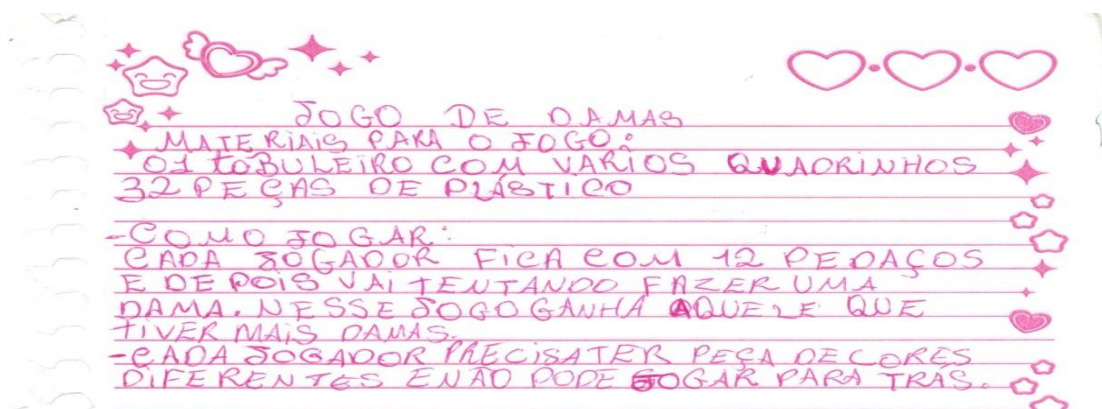 JOGO DE DAMAS
MATERIAIS PARA O JOGO:
01 TOBULEIRO COM VARIOS QUADRINHOS
32 PEÇAS DE PLÁSTICO
-COMO JOGAR:
CADA JOGADOR FICA COM 12 PEDAÇOS
E DEPOIS VAI TENTANDO FAZER UMA
DAMA. NESSE JOGO GANHA AQUELE QUE
TIVER MAIS DAMAS.
-CADA JOGADOR PRECISA TER PEÇA DE CORES
DIFERENTES E NÃO PODE JOGAR PARA TRÁS.